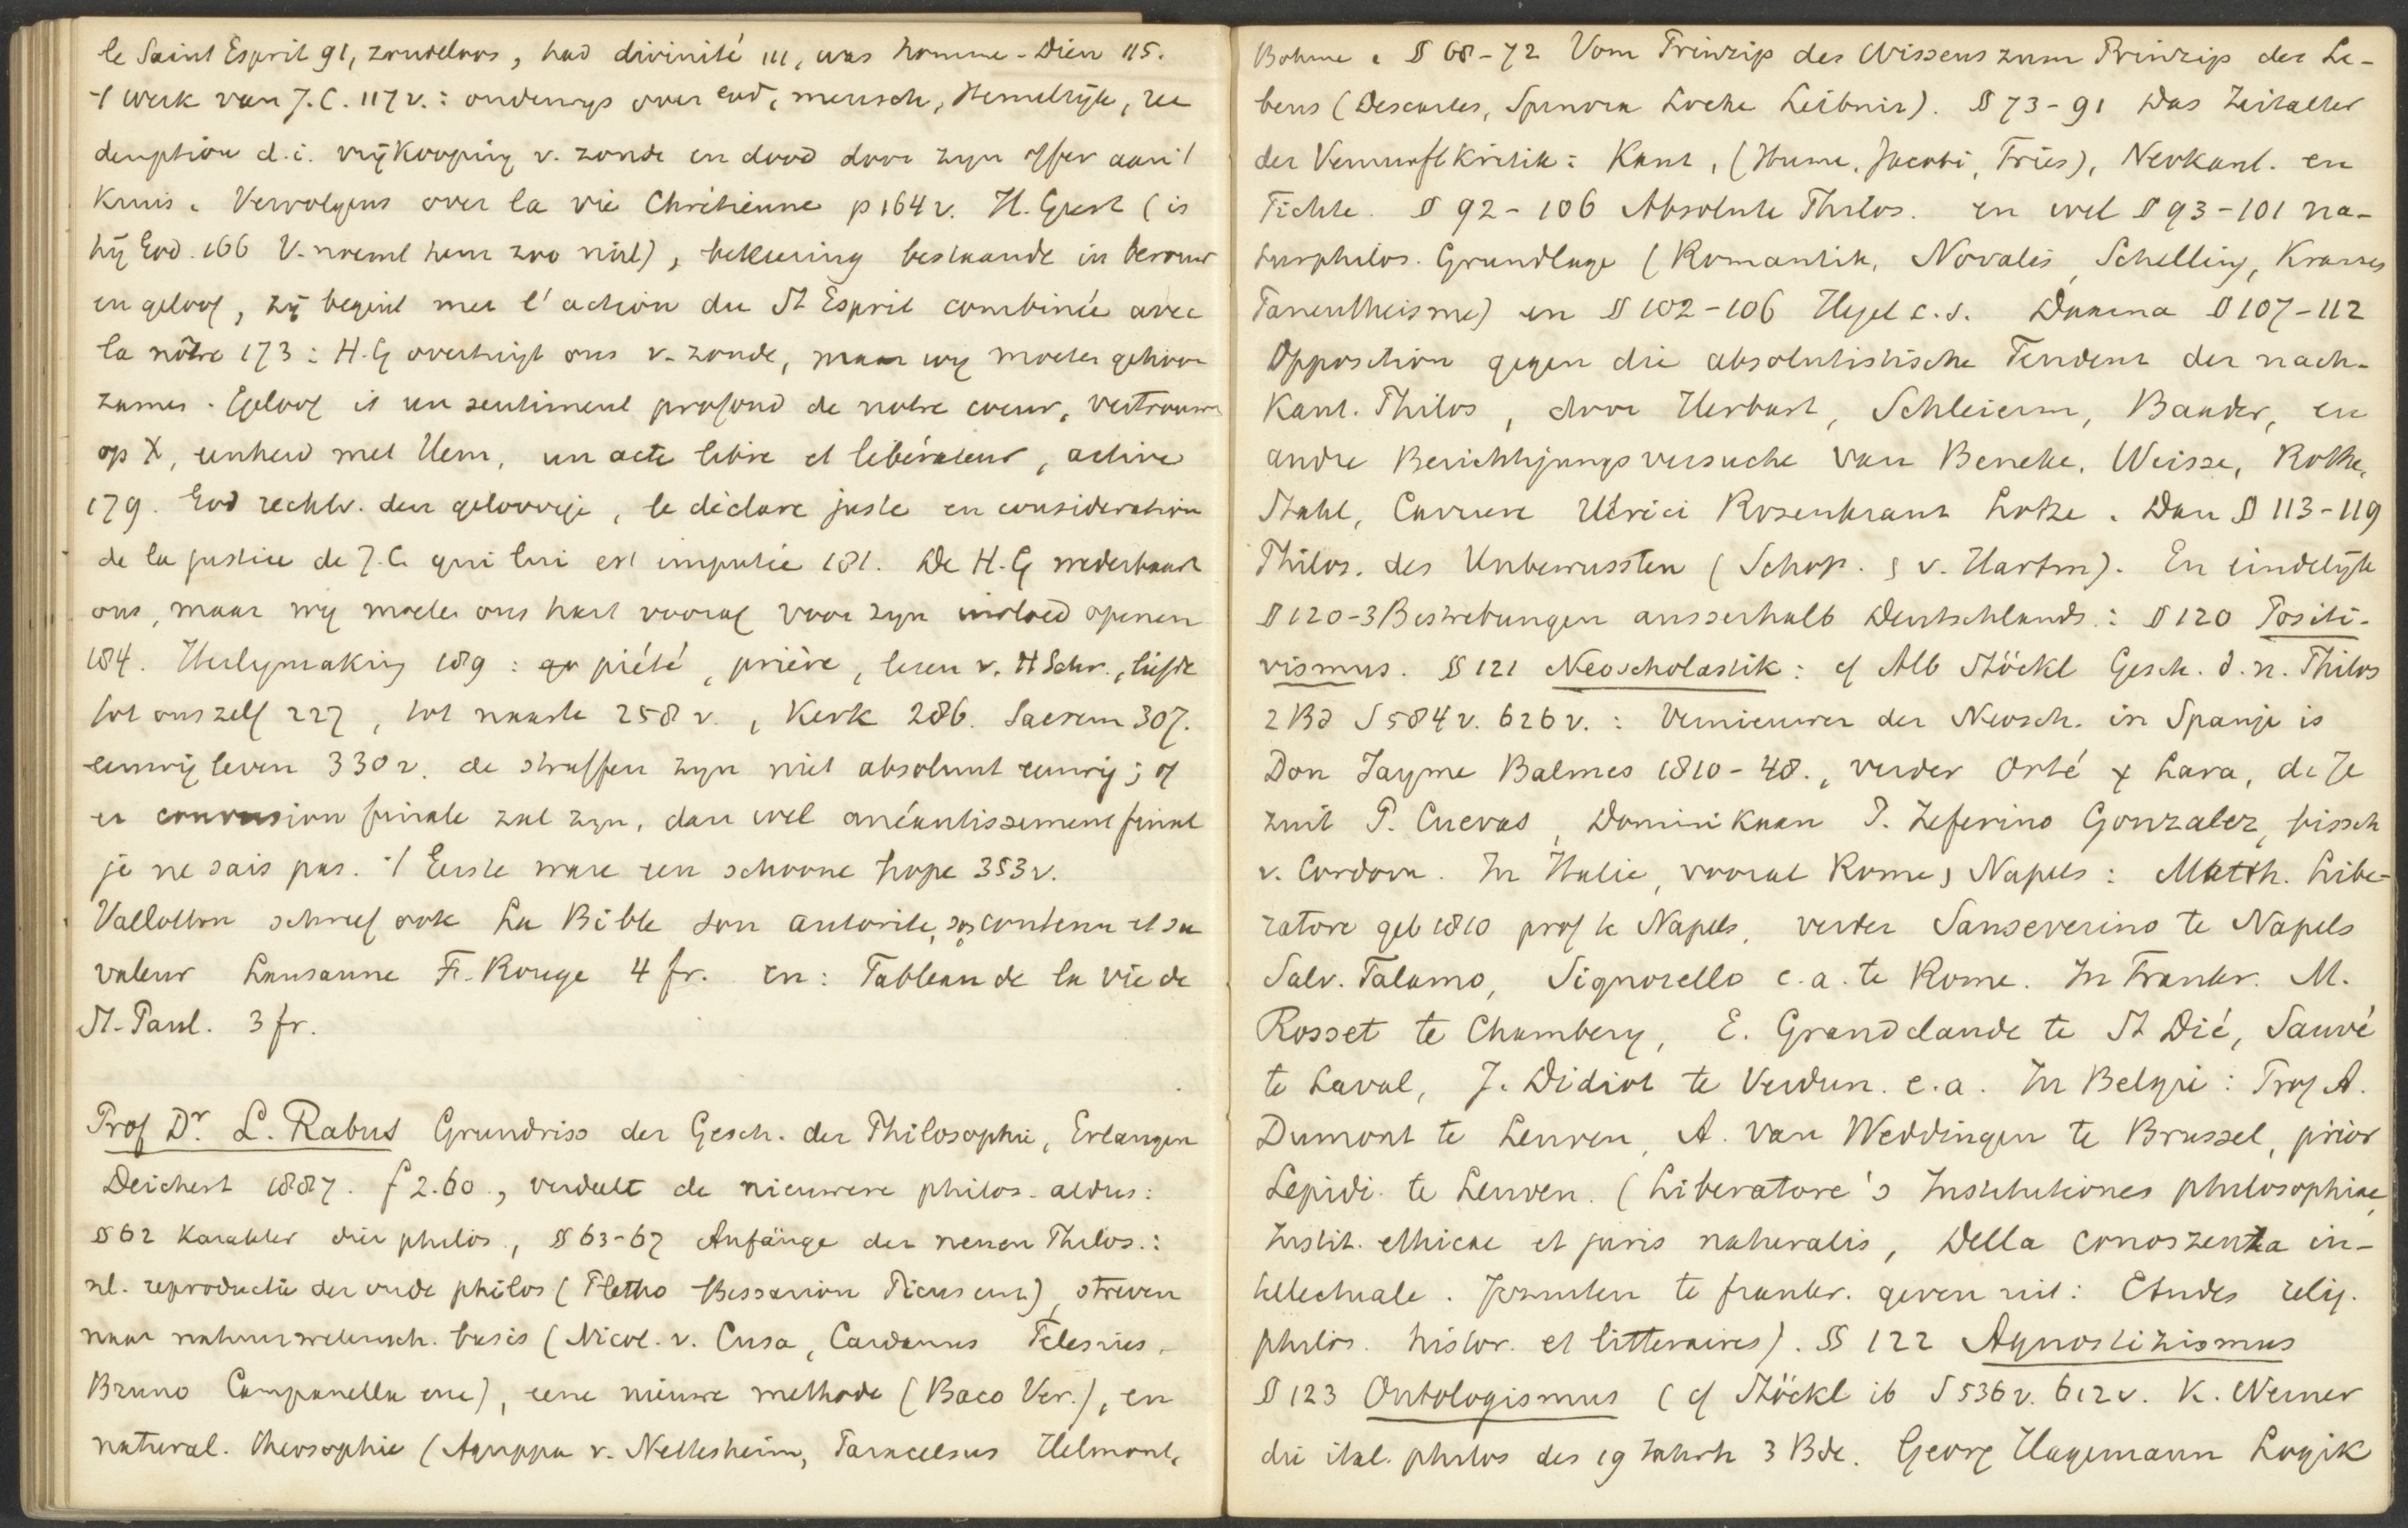 le Saint Esprit 91, zondeloos, had divinité 111, was homme-Dieu 115.
't werk van J.C. 117 v.: onderwys over God, mensch, Hemelrijk, re
demption d.i. vrijkooping v. zonde en dood door zyn offer aan 't
Kruis. Vervolgens over la vie Chrétienne p 164 v. H. Geest (is
hij God. 166 V. noemt hem zoo niet), bekeering bestaande in berouw
en geloof, zij begint met l'action du St Esprit combinée avec
la nôtre 173: H.G overtuigt ons v. zonde, maar wy moeten gehoor-
zamen. Geloof is un sentiment profond de notre coeur, vertrouwen
op X, eenheid met Hem, un acte libre et libérateur, active
179. God rechtv. den geloovige, le déclare juste en consideration
de la justice de J.C. qui lui est imputée 181. De H.G wederbaart
ons, maar wy moeten ons hart vooraf voor zyn invloed openen
184. Heiligmaking 189: piété, prière, lezen v. H Schr., liefde
tot ons zelf 227, tot naaste 258 v., Kerk 286. Sacrem 307.
eeuwig leven 330 v. de straffen zyn niet absoluut eeuwig; of
er conversion finale zal zyn, dan wel anéantissement final
je ne sais pas. 't Eerste ware een schoone hope 353 v.
Vallotton schreef ook La Bible son autorite, son contenu et sa
valeur Lausanne F. Rouge 4 fr. en: Tableau de la vie de
St. Paul. 3 fr.
Prof Dr. L. Rabus Grundriss der Gesch. der Philosophie, Erlangen
Deichert 1887. f 2.60., verdeelt de nieuwere philos. aldus:
§ 62 Karakter dier philos., §§ 63-67 Anfänge der neuen Philos.:
nl. reproductie der oude philos (Pletho Bessarion Picus enz), streven
naar natuurwetensch. basis (Nicol. v. Cusa, Cardanus Telesius,
Bruno Campanella enz), eene nieuwe methode (Baco Ver.), en
natural. theosophie (Agrippa v. Nettesheim, Paracelsus Helmont,
Bohme. § 68-72 Vom Prinzip des Wissens zum Prinzip des Le-
bens (Descartes, Spinoza Locke Leibniz). § 73-91 Das Zeitalter
der Vernunftkritik: Kant, (Hume, Jacobi, Fries), Neokant. en
Fichte. § 92-106 Absolute Philos. en wel § 93-101 na-
turphilos. Grundlage (Romantik, Novalis, Schelling, Krauses
Panentheisme) en §§ 102-106 Hegel c.s. Daarna § 107-112
Opposition gegen die absolutistische Tendenz der nach-
Kant. Philos, door Herbart, Schleierm, Baader, en
andre Berichtigungsversuche van Beneke, Weisse, Rothe,
Stahl, Carriere Ulrici Rosenkranz Lotze. Dan § 113-119
Philos. des Unbewussten (Schop. & v. Hartm). En eindelijk
§ 120-3 Bestrebungen ausserhalb Deutschlands: § 120 Positi-
vismus. §§ 121 Neoscholastik: cf Alb Stöckl Gesch. d. n. Philos
2 Bd S 584 v. 626 v.: Vernieuwer der Neosch. in Spanje is
Don Jayme Balmes 1810-48., verder Orté y Lara, de Je
zuit P. Cuevas, Dominikaan P. Zeferino Gonzalez, bissch
v. Cordova. In Italie, vooral Rome & Napels: Matth. Libe-
ratore geb 1810 prof te Napels, verder Sanseverino te Napels
Salv. Talamo, Signorello e.a. te Rome. In Frankr. M.
Rosset te Chambery, E. Grandclaude te St Dié, Sauvé
te Laval, J. Didiot te Verdun. e.a. In Belgie: Prof A.
Dumont te Leuven, A. van Weddingen te Brussel, prior
Lepidi te Leuven. (Liberatore's Institutiones philosophiae,
Instit. ethicae et juris naturalis, Della conoszenza in-
tellectuale. Jezuiten te frankr. geven uit: Etudes relig.
philos. histor. et litteraires). §§ 122 Agnostizismus
§ 123 Ontologismus (cf Stöckl ib S 536 v. 612 v. K. Werner
die ital. philos des 19 Jahrh 3 Bde. Georg Hagemann Logik